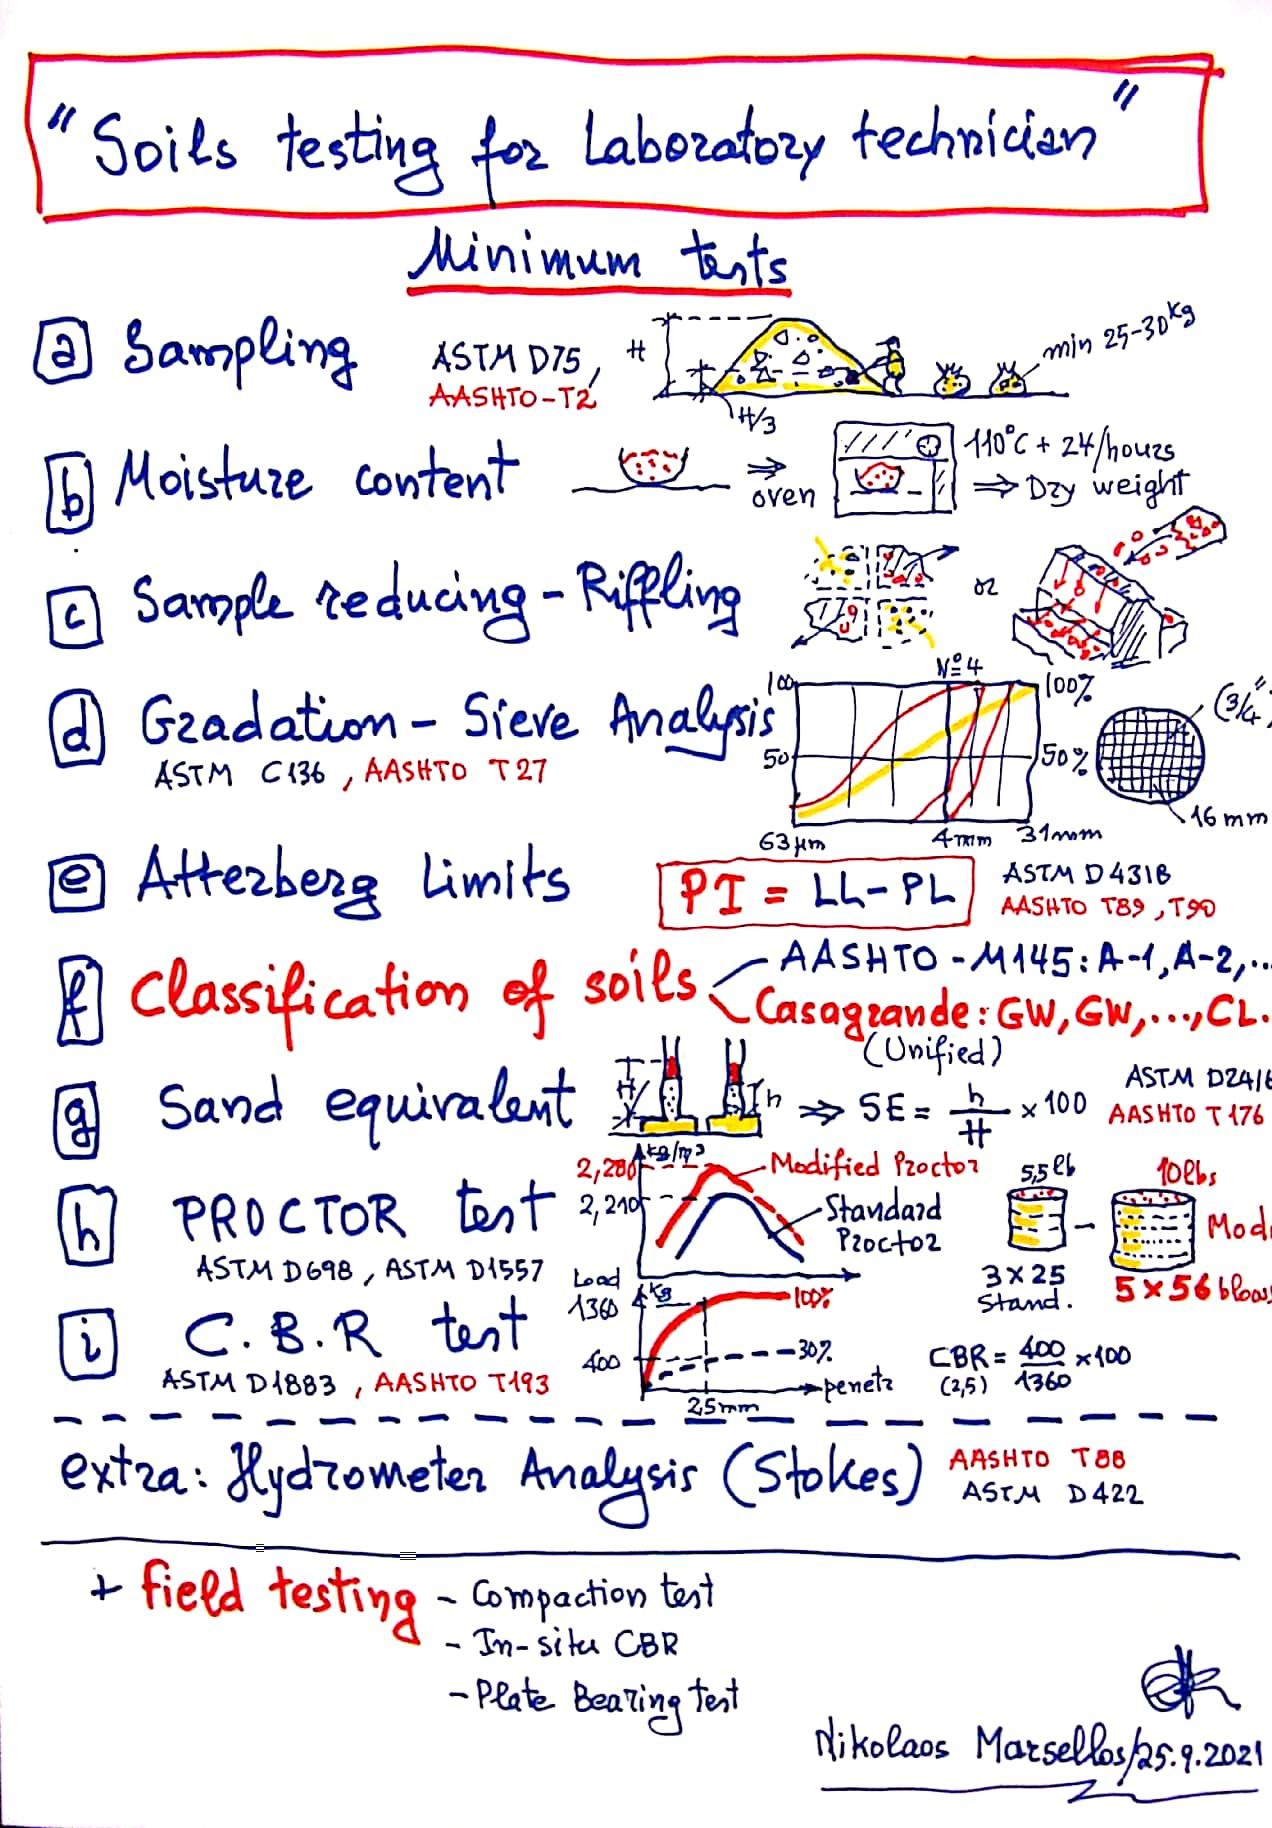 "Soils testing for Laboratory technician"
Minimum tests
a Sampling ASTM D75, AASHTO-T2 H H/3 min 25-30kg
b Moisture content oven 110°C + 24/hours
⇒ Dry weight
c Sample reducing - Riffling or
d Gradation - Sieve Analysis
ASTM C136, AASHTO T27
100 50 Nº4 100% 50% 63μm 4mm 31mm (3/4" 16mm
e Atterberg Limits PI = LL-PL ASTM D4318
AASHTO T89, T90
f Classification of soils AASHTO - M145: A-1, A-2,...
Casagrande: GW, GW, ..., CL.
(Unified)
g Sand equivalent H h ⇒ SE = h/H x 100 ASTM D2416
AASHTO T176
h PROCTOR test
ASTM D698, ASTM D1557
kg/m³ 2,280 2,210 Modified Proctor
Standard Proctor
5,5lb 3x25 Stand.
10lbs Mod 5x56 blows
i C.B.R test
ASTM D1883, AASHTO T193
Load 1360 400 kg 100% 30% penetr 2,5mm
CBR = 400/1360 x100
(2,5)
extra: Hydrometer Analysis (Stokes) AASHTO T88
ASTM D422
+ field testing - Compaction test
- In-situ CBR
- Plate Bearing test
Nikolaos Marsellos/25.9.2021